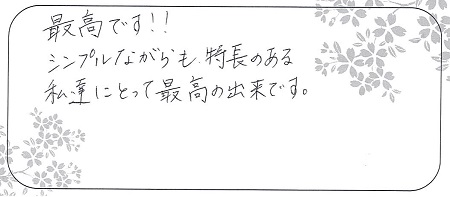 最高です!!
シンプルながらも、特長のある
私達にとって最高の出来です。